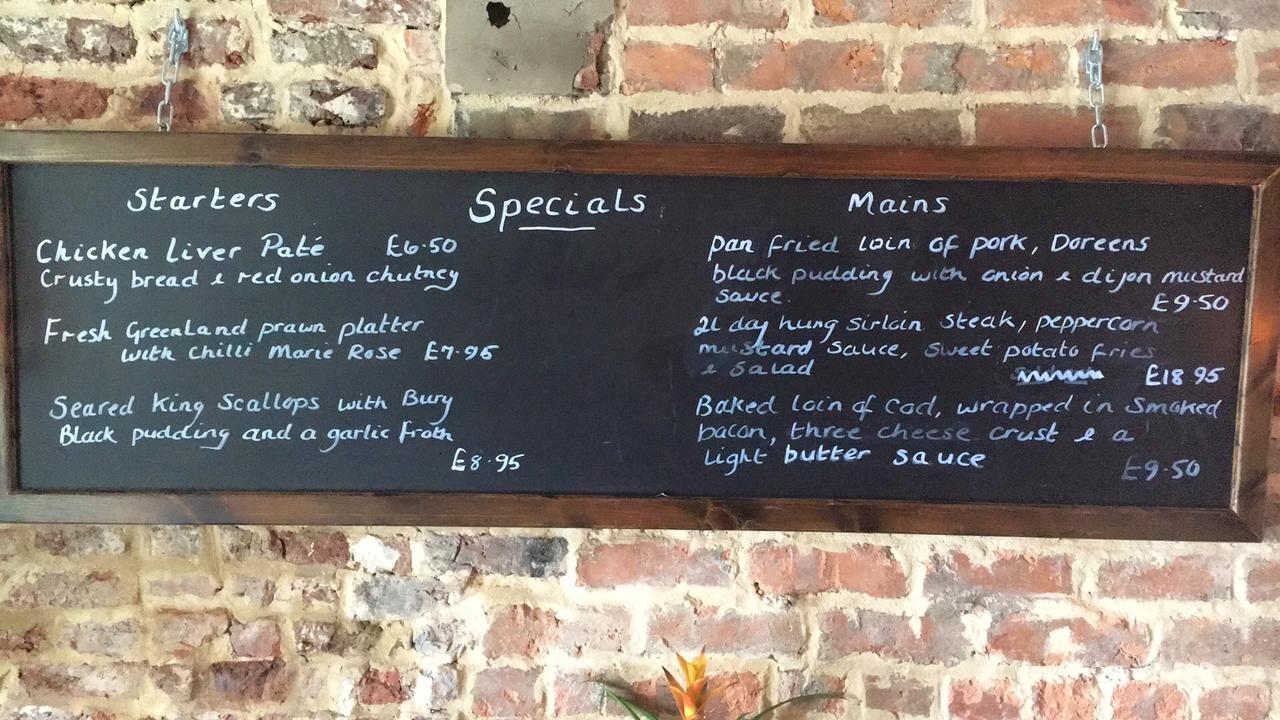 Specials
Starters
Chicken Liver Paté £6.50
Crusty bread & red onion chutney
Fresh Greenland prawn platter
with chilli Marie Rose £7.95
Seared King Scallops with Bury
Black pudding and a garlic froth
£8.95
Mains
pan fried loin of pork, Doreens
black pudding with onion & dijon mustard
sauce.
£9.50
21 day hung sirloin steak, peppercorn
mustard sauce, sweet potato fries
& salad £18 95
Baked loin of cod, wrapped in smoked
bacon, three cheese crust & a
light butter sauce
£9.50